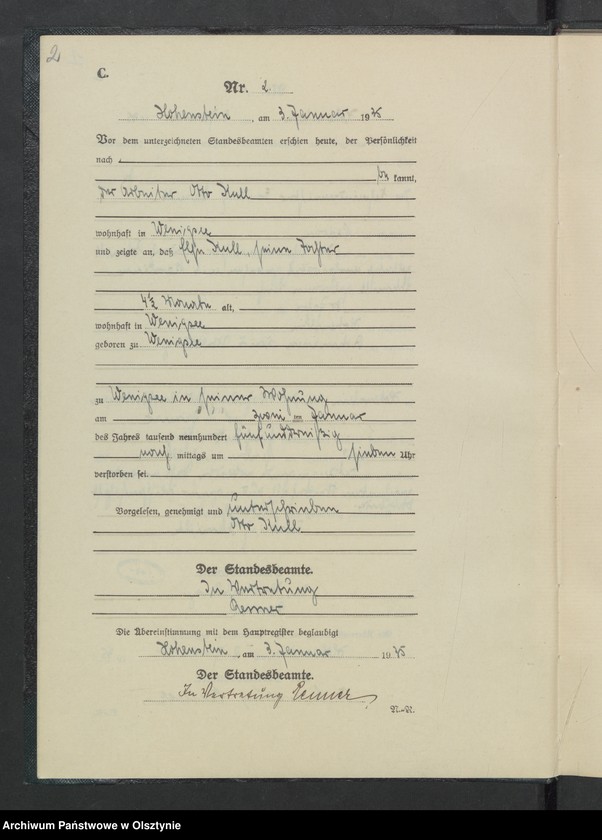 2
C.
Nr. 2
Hohenstein, am 3. Januar 1935
Vor dem unterzeichneten Standesbeamten erschien heute, der Persönlichkeit
nach
be kannt,
der Arbeiter Otto Kull
wohnhaft in Wenigsee
und zeigte an, daß Kull, seine Tochter
4½ Monate alt,
wohnhaft in Wenigsee
geboren zu Wenigsee
zu Wenigsee in seiner Wohnung
am zwei ten Januar
des Jahres tausend neunhundert fünfunddreißig
nach mittags um sieben Uhr
verstorben sei.
Vorgelesen, genehmigt und unterschrieben
Otto Kull
Der Standesbeamte.
In Vertretung
Die Übereinstimmung mit dem Hauptregister beglaubigt
Hohenstein, am 3. Januar 1935
Der Standesbeamte.
In Vertretung
N.-R.
Archiwum Państwowe w Olsztynie